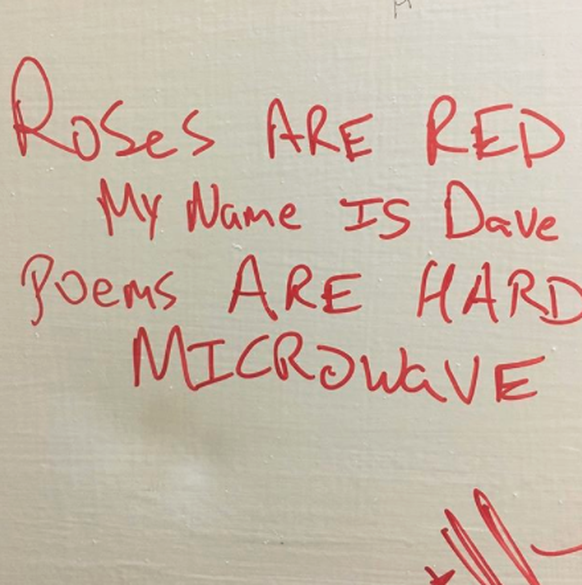 Roses ARE RED
My Name Is Dave
Poems ARE HARD
MICROWaVE